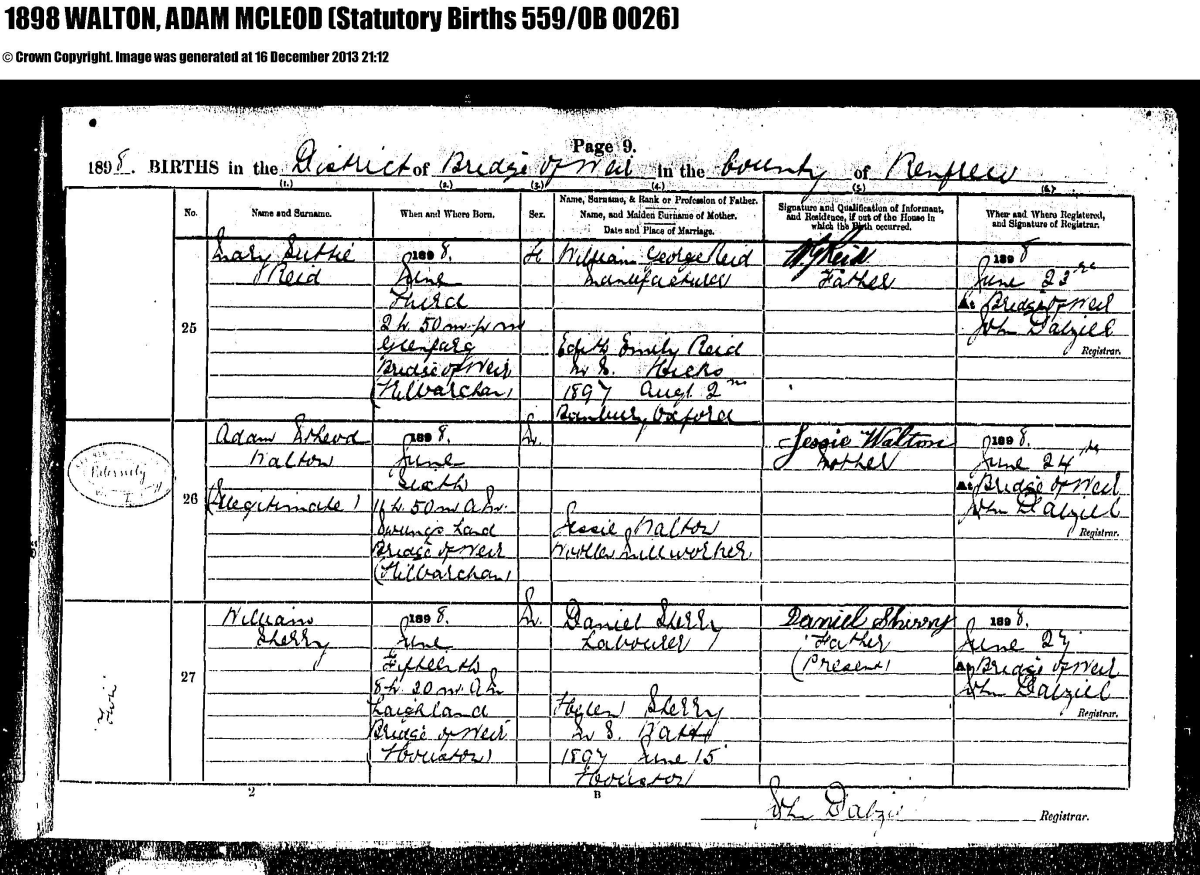 1898 WALTON, ADAM MCLEOD (Statutory Births 559/0B 0026)
© Crown Copyright. Image was generated at 16 December 2013 21:12
Page 9.
1898. BIRTHS in the District of Bridge of Weir in the County of Renfrew
(1.) (2.) (3.) (4.) (5.) (6.)
No.
Name and Surname.
When and Where Born.
Sex.
Name, Surname, & Rank or Profession of Father.
Name, and Maiden Surname of Mother.
Date and Place of Marriage.
Signature and Qualification of Informant,
and Residence, if out of the House in
which the Birth occurred.
When and Where Registered,
and Signature of Registrar.
25
Mary Suttie
Reid
1898.
June
Third
2 h. 50 m. p m
Glenfarg
Bridge of Weir
(Kilbarchan)
F
William George Reid
Manufacturer
Edith Emily Reid
M. S. Hicks
1897 Augt. 2nd
Banbury Oxford
W. G. Reid
Father
1898
June 23rd
At Bridge of Weir
John Dalziel
Registrar.
Paternity
26
Adam McLeod
Walton
(Illegitimate)
1898.
June
Sixth
11 h. 50 m. A.M.
Land
Bridge of Weir
(Kilbarchan)
M.
Jessie Walton
Woollen millworker
Jessie Walton
Mother
1898.
June 24th
At Bridge of Weir
John Dalziel
Registrar.
27
William
Sherry
1898.
June
Fifteenth
8 h. 20 m. A M.
Laighland
Bridge of Weir
(Houston)
M.
Daniel Sherry
Labourer
Helen Sherry
M. S. Watt
1897 June 15
Houston
Daniel Shirry
Father
(Present)
1898.
June 27
At Bridge of Weir
John Dalziel
Registrar.
2
B
John Dalziel
Registrar.